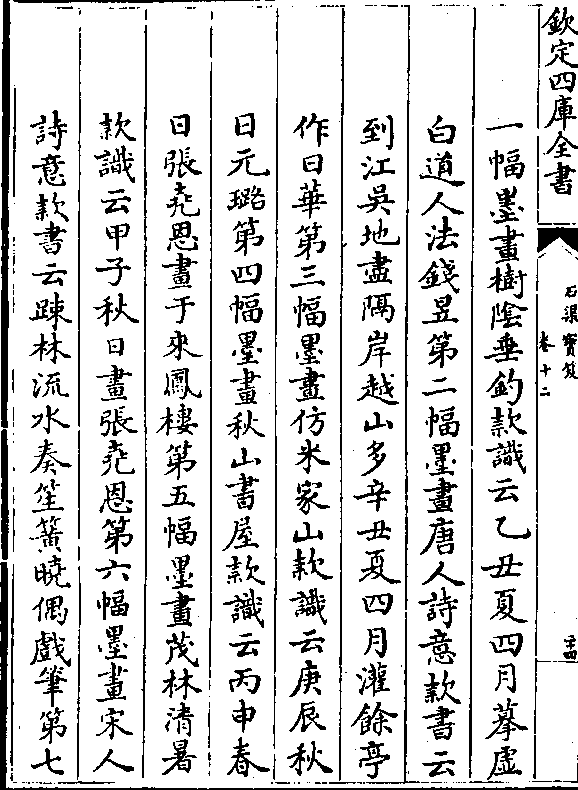 欽定四庫全書
石渠寶笈
卷十二
一幅墨畫樹陰垂釣款識云乙丑夏四月摹虛
白道人法錢昱第二幅墨畫唐人詩意款書云
到江吳地盡隔岸越山多辛丑夏四月灌餘亭
作曰華第三幅墨畫仿米家山款識云庚辰秋
日元璐第四幅墨畫秋山書屋款識云丙申春
日張堯恩畫于來鳳樓第五幅墨畫茂林清暑
款識云甲子秋日畫張堯恩第六幅墨畫宋人
詩意款書云踈林流水奏笙簧曉偶戲筆第七